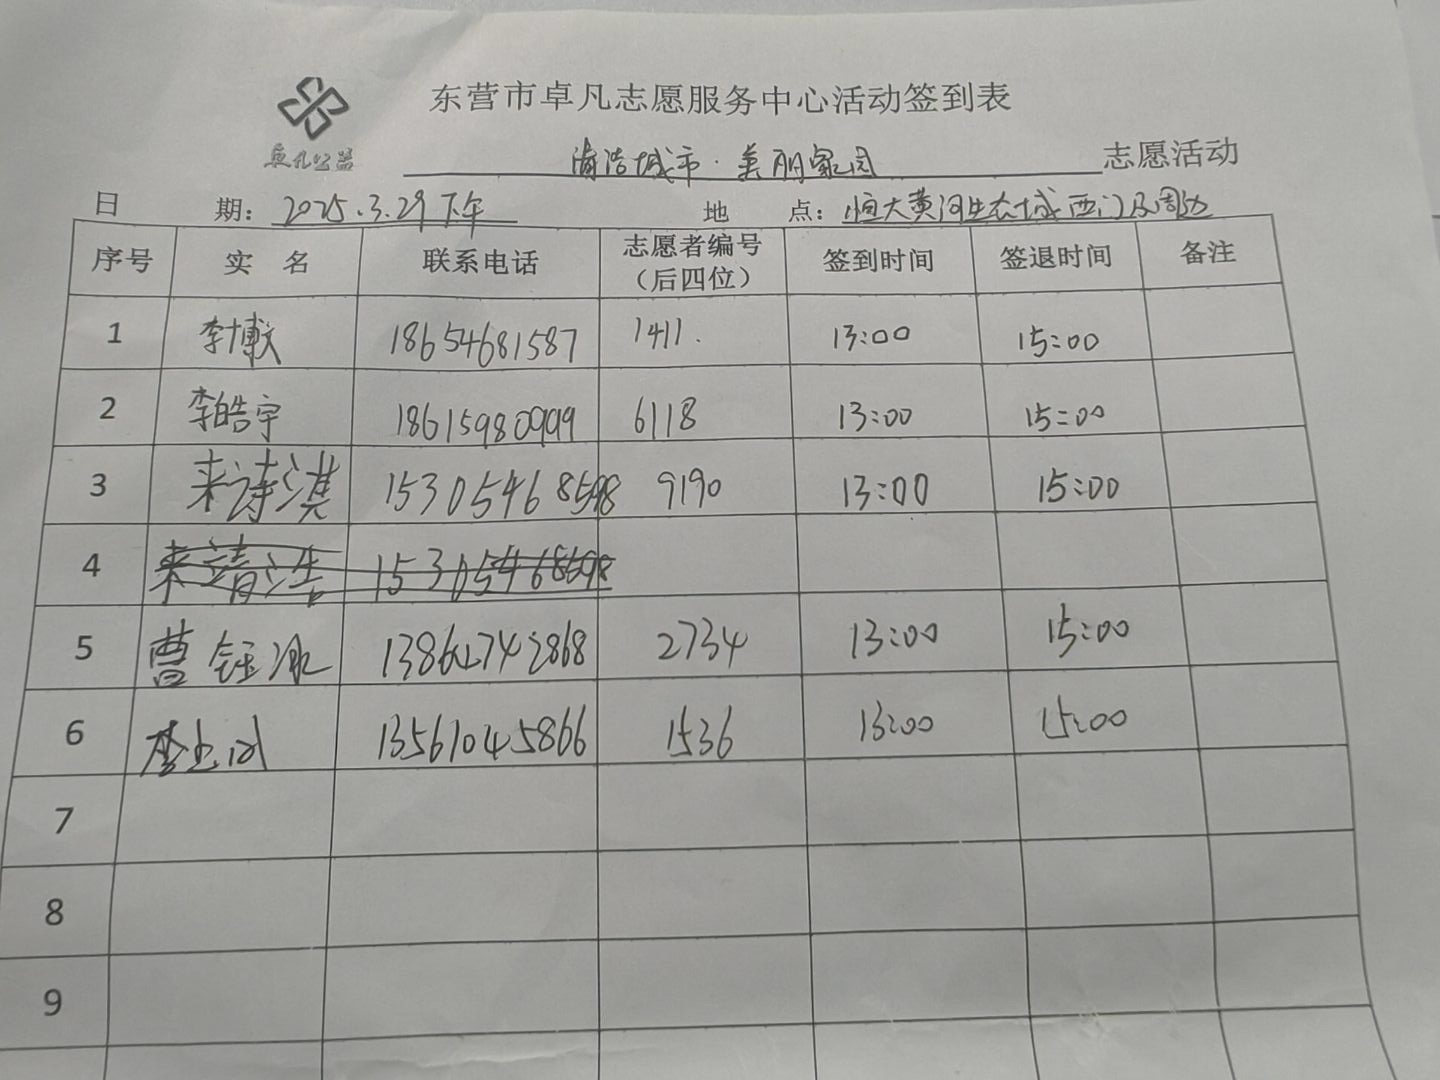 东营市卓凡志愿服务中心活动签到表
卓凡公益
海洁城市·美丽家园 志愿活动
日 期：2025.3.29下午 地 点：恒大黄河生态城西门及周边
序号 实 名 联系电话 志愿者编号（后四位） 签到时间 签退时间 备注
1 李博文 18654681587 1411. 13:00 15:00
2 李皓宇 18615980999 6118 13:00 15:00
3 来诗淇 15305468598 9190 13:00 15:00
4 来清洁 15305468598
5 曹钰冰 2734 13:00 15:00
6 13561045866 1536 13:00 15:00
7
8
9